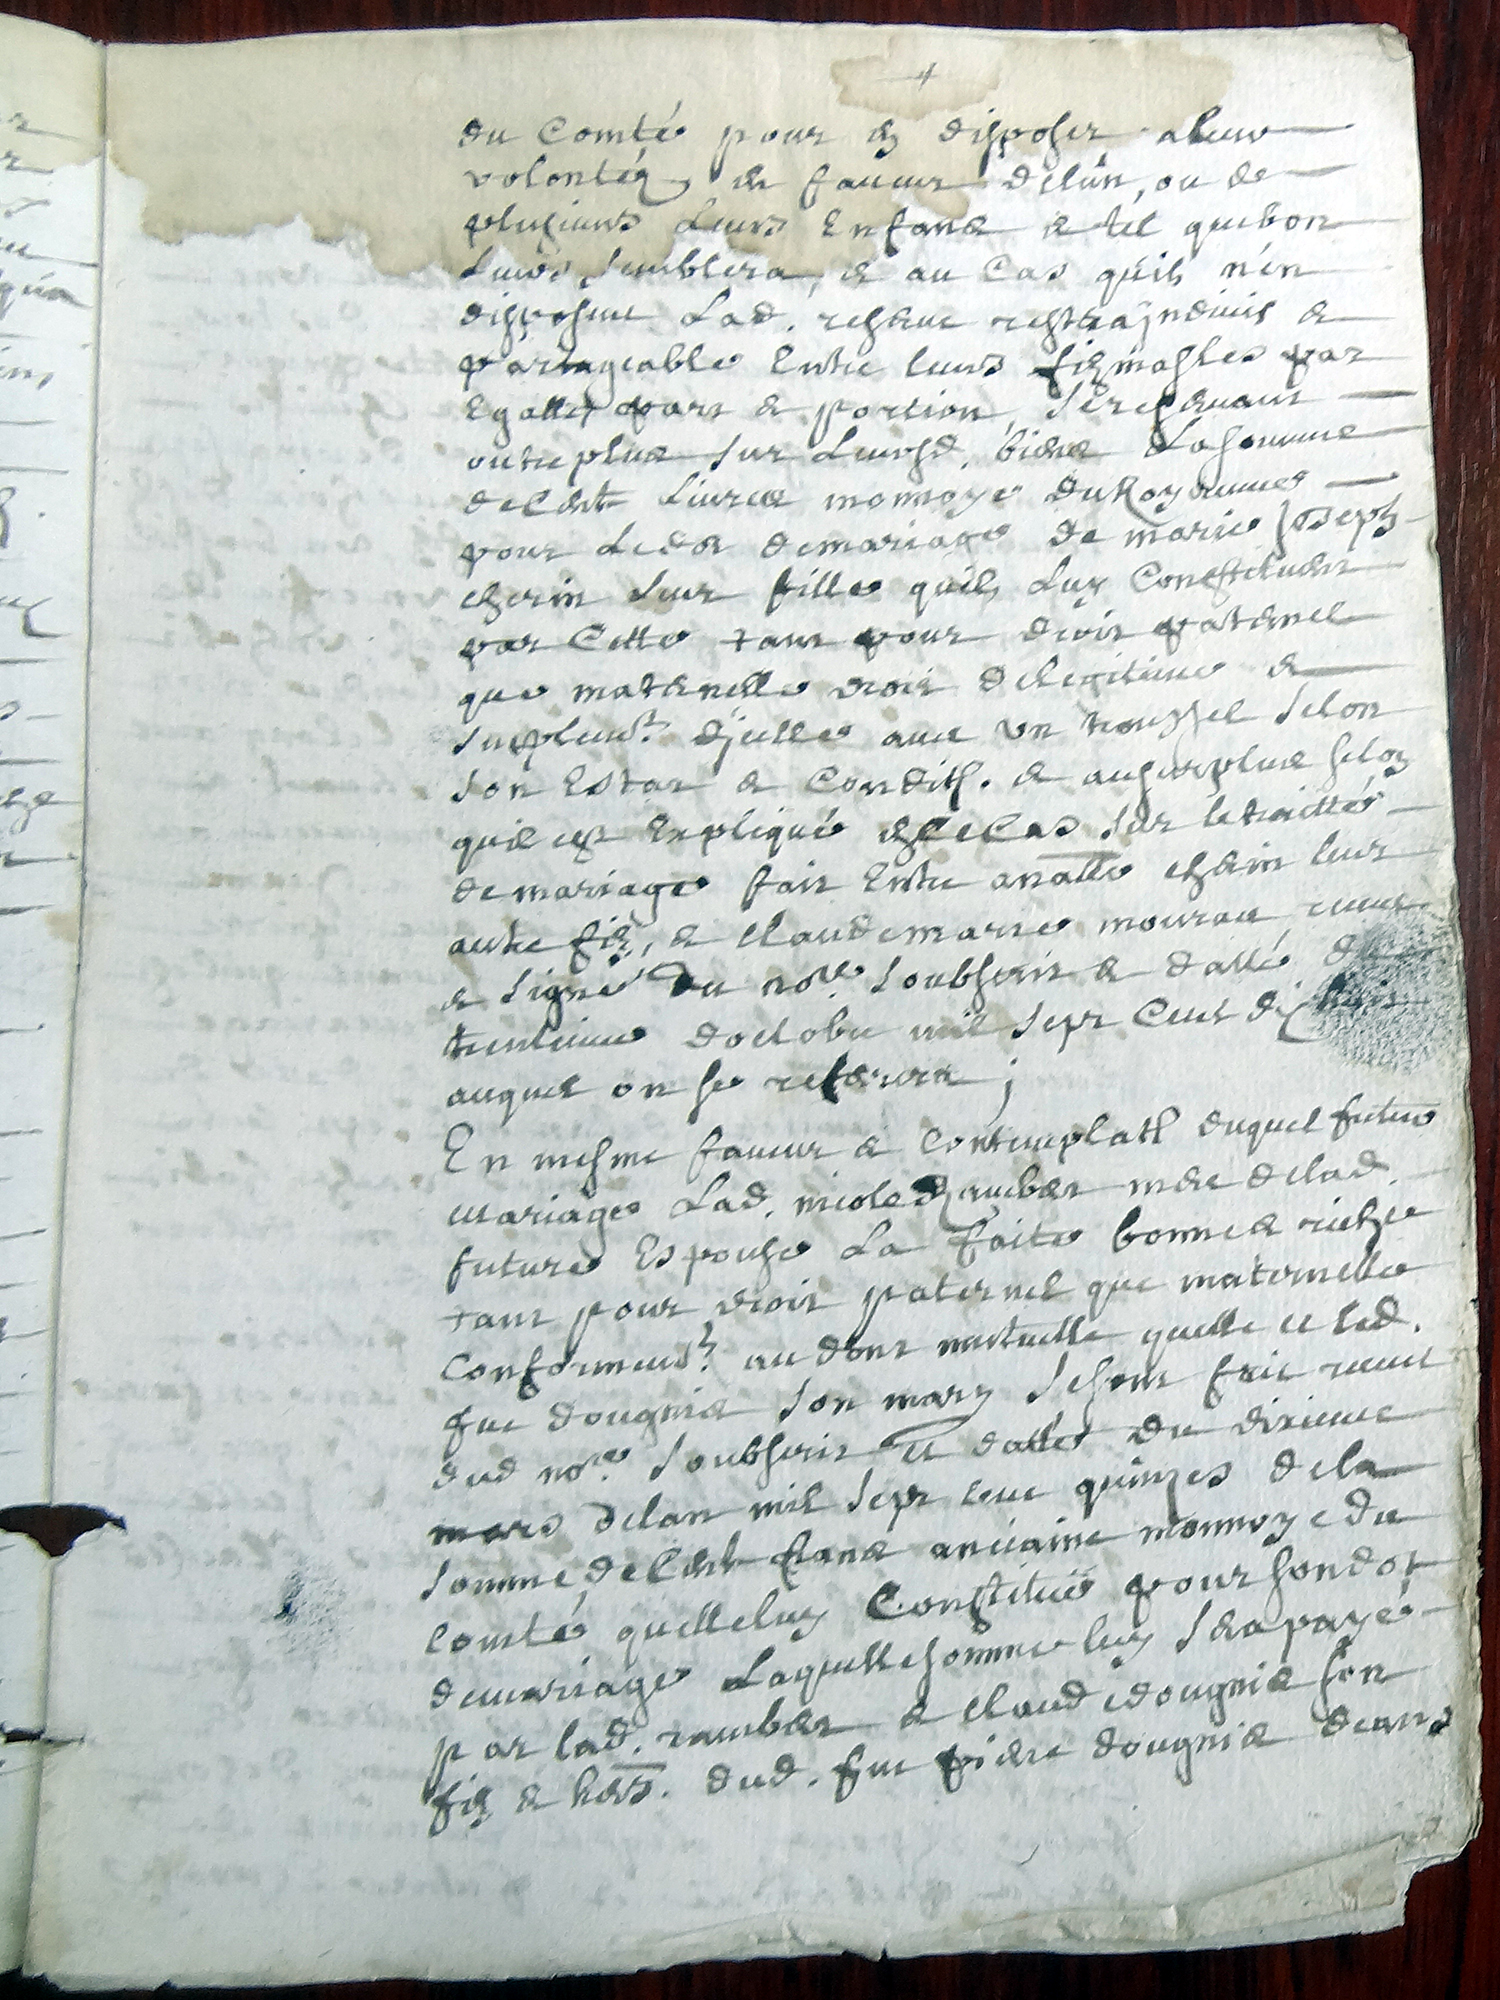 du Comté pour en disposer a leur
volontéz en faveur delun, ou de
plusieurs Leurs Enfans et tel que bon
Leurs semblera, et au Cas quils n'en
disposent Lad. reserve restraindenis et
partageable Entre leurs fis masles par
Egalles part et portion, se reservant
outre plus sur Leursd. biens La somme
de Cent Livres monnoye du Royaume
pour Le dot de mariage de marie Joseph
cherin leur fille quils Luy Constituent
par Cette tant pour droit paternel
que maternelle droit de legitime et
suplemt. d'jcelle avec un troussel selon
son Estat et Condith. et au surplus selon
quil est Expliqué en le Cas sur le traitté
de mariage fait Entre anatle cherin leur
autre fis, et Claude marie mourau receu
et signé du nore. soubscrit et datté du
trentieme doctobre mil sept Cent dix huit
auquel on se referera ;
En mesme faveur et Contemplath duquel futur
mariage Lad. nicole rambert mere de lad.
future Espouse La faite bonne et riche
tant pour droit paternel que maternelle
Conformemt. au dont mutuelle quelle et led.
fut dougnie son mary se sont fait receut
dud nore. soubscrit et datté du dixieme
mars delan mil sept Cent quinzes de la
somme de Cent frans anciaine monnoye du
Comté quelle luy Constitue pour son dot
de mariage Laquelle somme luy sera payé
par lad. rambert et Claude dougnie son
fis et hers. dud. fut piere dougnie deans